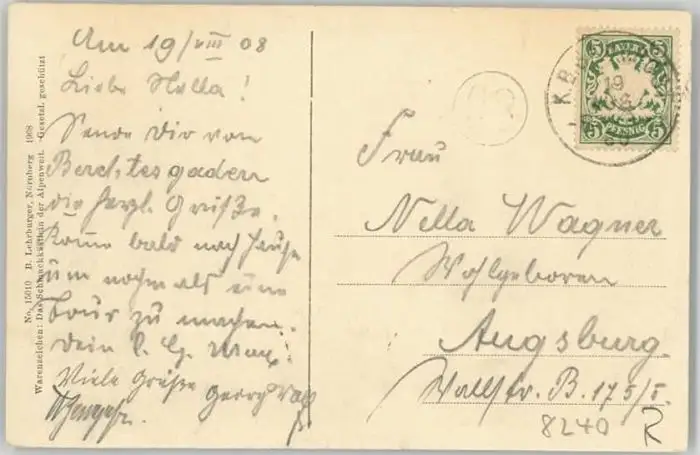 Am 19/VIII 08
Liebe Nella!
Sende Dir von
Berchtesgaden
die herzl. Grüße.
Komme bald nach Hause
um nochmals eine
Tour zu machen.
Dein l. G. Max!
Viele Grüße Georg
Frau
Nella Wagner
Wohlgeboren
Augsburg
Wallstr. B. 175/I.
8240
R
BAYERN
5 5
PFENNIG
5 5
K.B.
19
No. 15010 B. Lehrburger, Nürnberg 1908
Warenzeichen: Das Schmuckkästlein der Alpenwelt. Gesetzl. geschützt